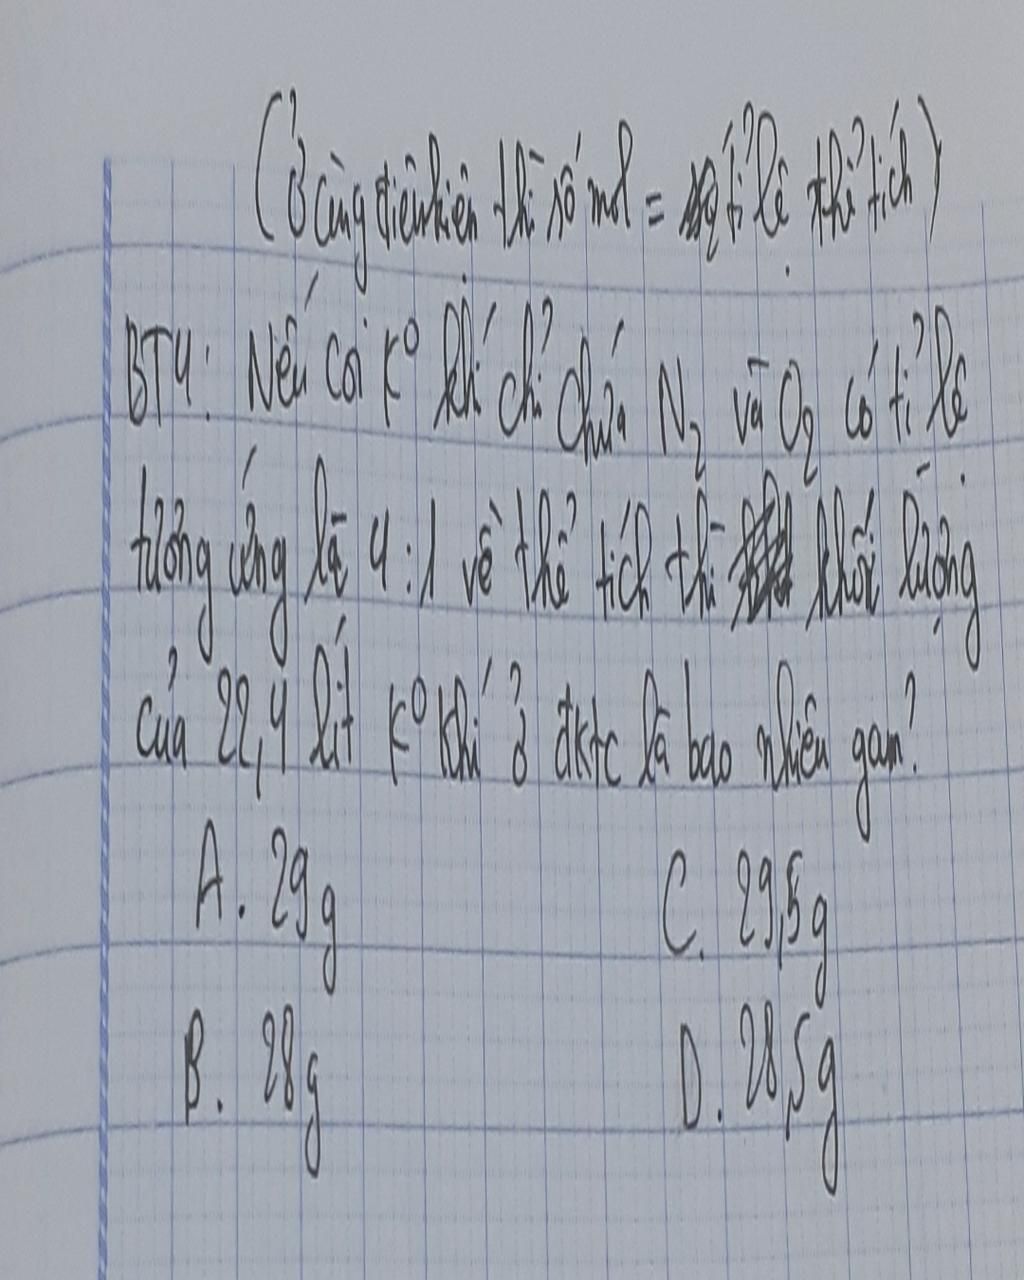 (Ở cùng điều kiện thì số mol = tỉ lệ thể tích)
BT4: Nếu coi K° khí chỉ chứa N2 và O2 có tỉ lệ
tương ứng là 4:1 về thể tích thì khối lượng
của 22,4 lít K° khí ở đktc là bao nhiêu gam?
A. 29g C. 29,5g
B. 28g D. 28,5g